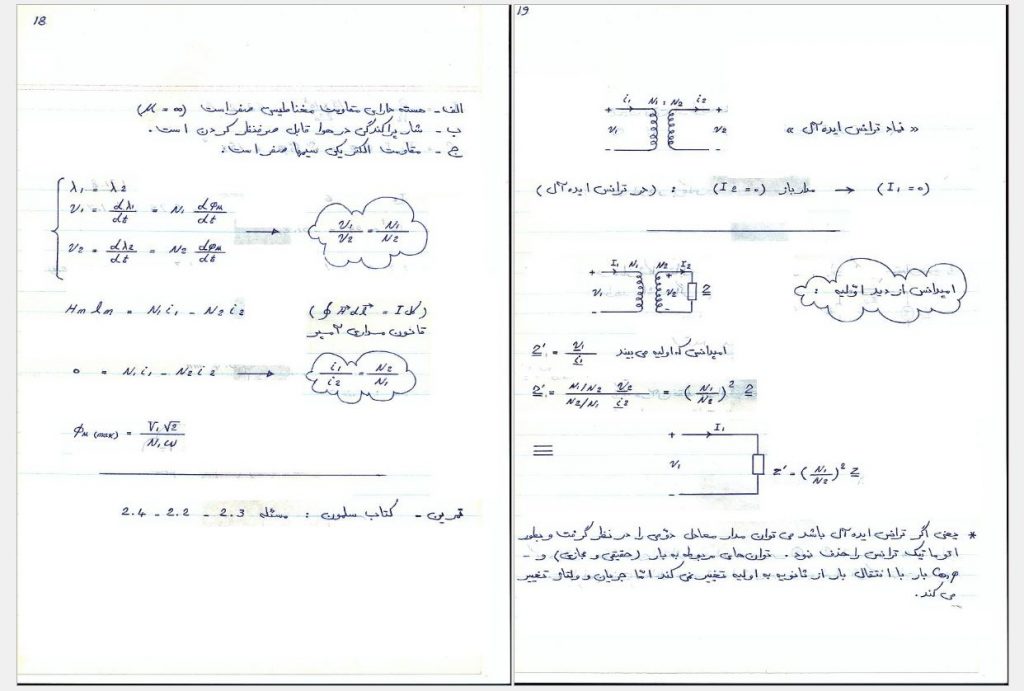 18
الف - هسته دارای مقاومت مغناطیسی صفر است (μ = ∞)
ب - شار پراکندگی در هوا قابل صرفنظر کردن است.
ج - مقاومت الکتریکی سیمها صفر است.
λ1 = λ2
v1 = dλ1/dt = N1 dφM/dt → v1/v2 = N1/N2
v2 = dλ2/dt = N2 dφM/dt
Hm lm = N1 i1 - N2 i2 (∮ H dl = I)
قانون مداری آمپر
0 = N1 i1 - N2 i2 → i1/i2 = N2/N1
φM (max) = V1 √2 / N1 ω
تمرین - کتاب سلمون : مسئله 2.3 - 2.2 - 2.4
19
i1 N1 : N2 i2
+ +
v1 v2
- -
« نماد ترانس ایده آل »
(در ترانس ایده آل) : (I2 = 0) مدار باز → (I1 = 0)
I1 N1 N2 I2
+ +
v1 v2 Z
- -
امپدانس از دید اولیه :
Z' = v1/i1 امپدانسی که اولیه می بیند
Z' = N1/N2 v2 / N2/N1 i2 = (N1/N2)² Z
≡
+ I1
v1
-
Z' = (N1/N2)² Z
* یعنی اگر ترانس ایده آل باشد می توان مدار معادل دومی را در نظر گرفت و بطور
اتوماتیک ترانس را حذف نمود. توان های مربوط به بار (حقیقی و مجازی) و -
Cosφ بار با انتقال بار از ثانویه به اولیه تغییر نمی کند اما جریان و ولتاژ تغییر
می کند.